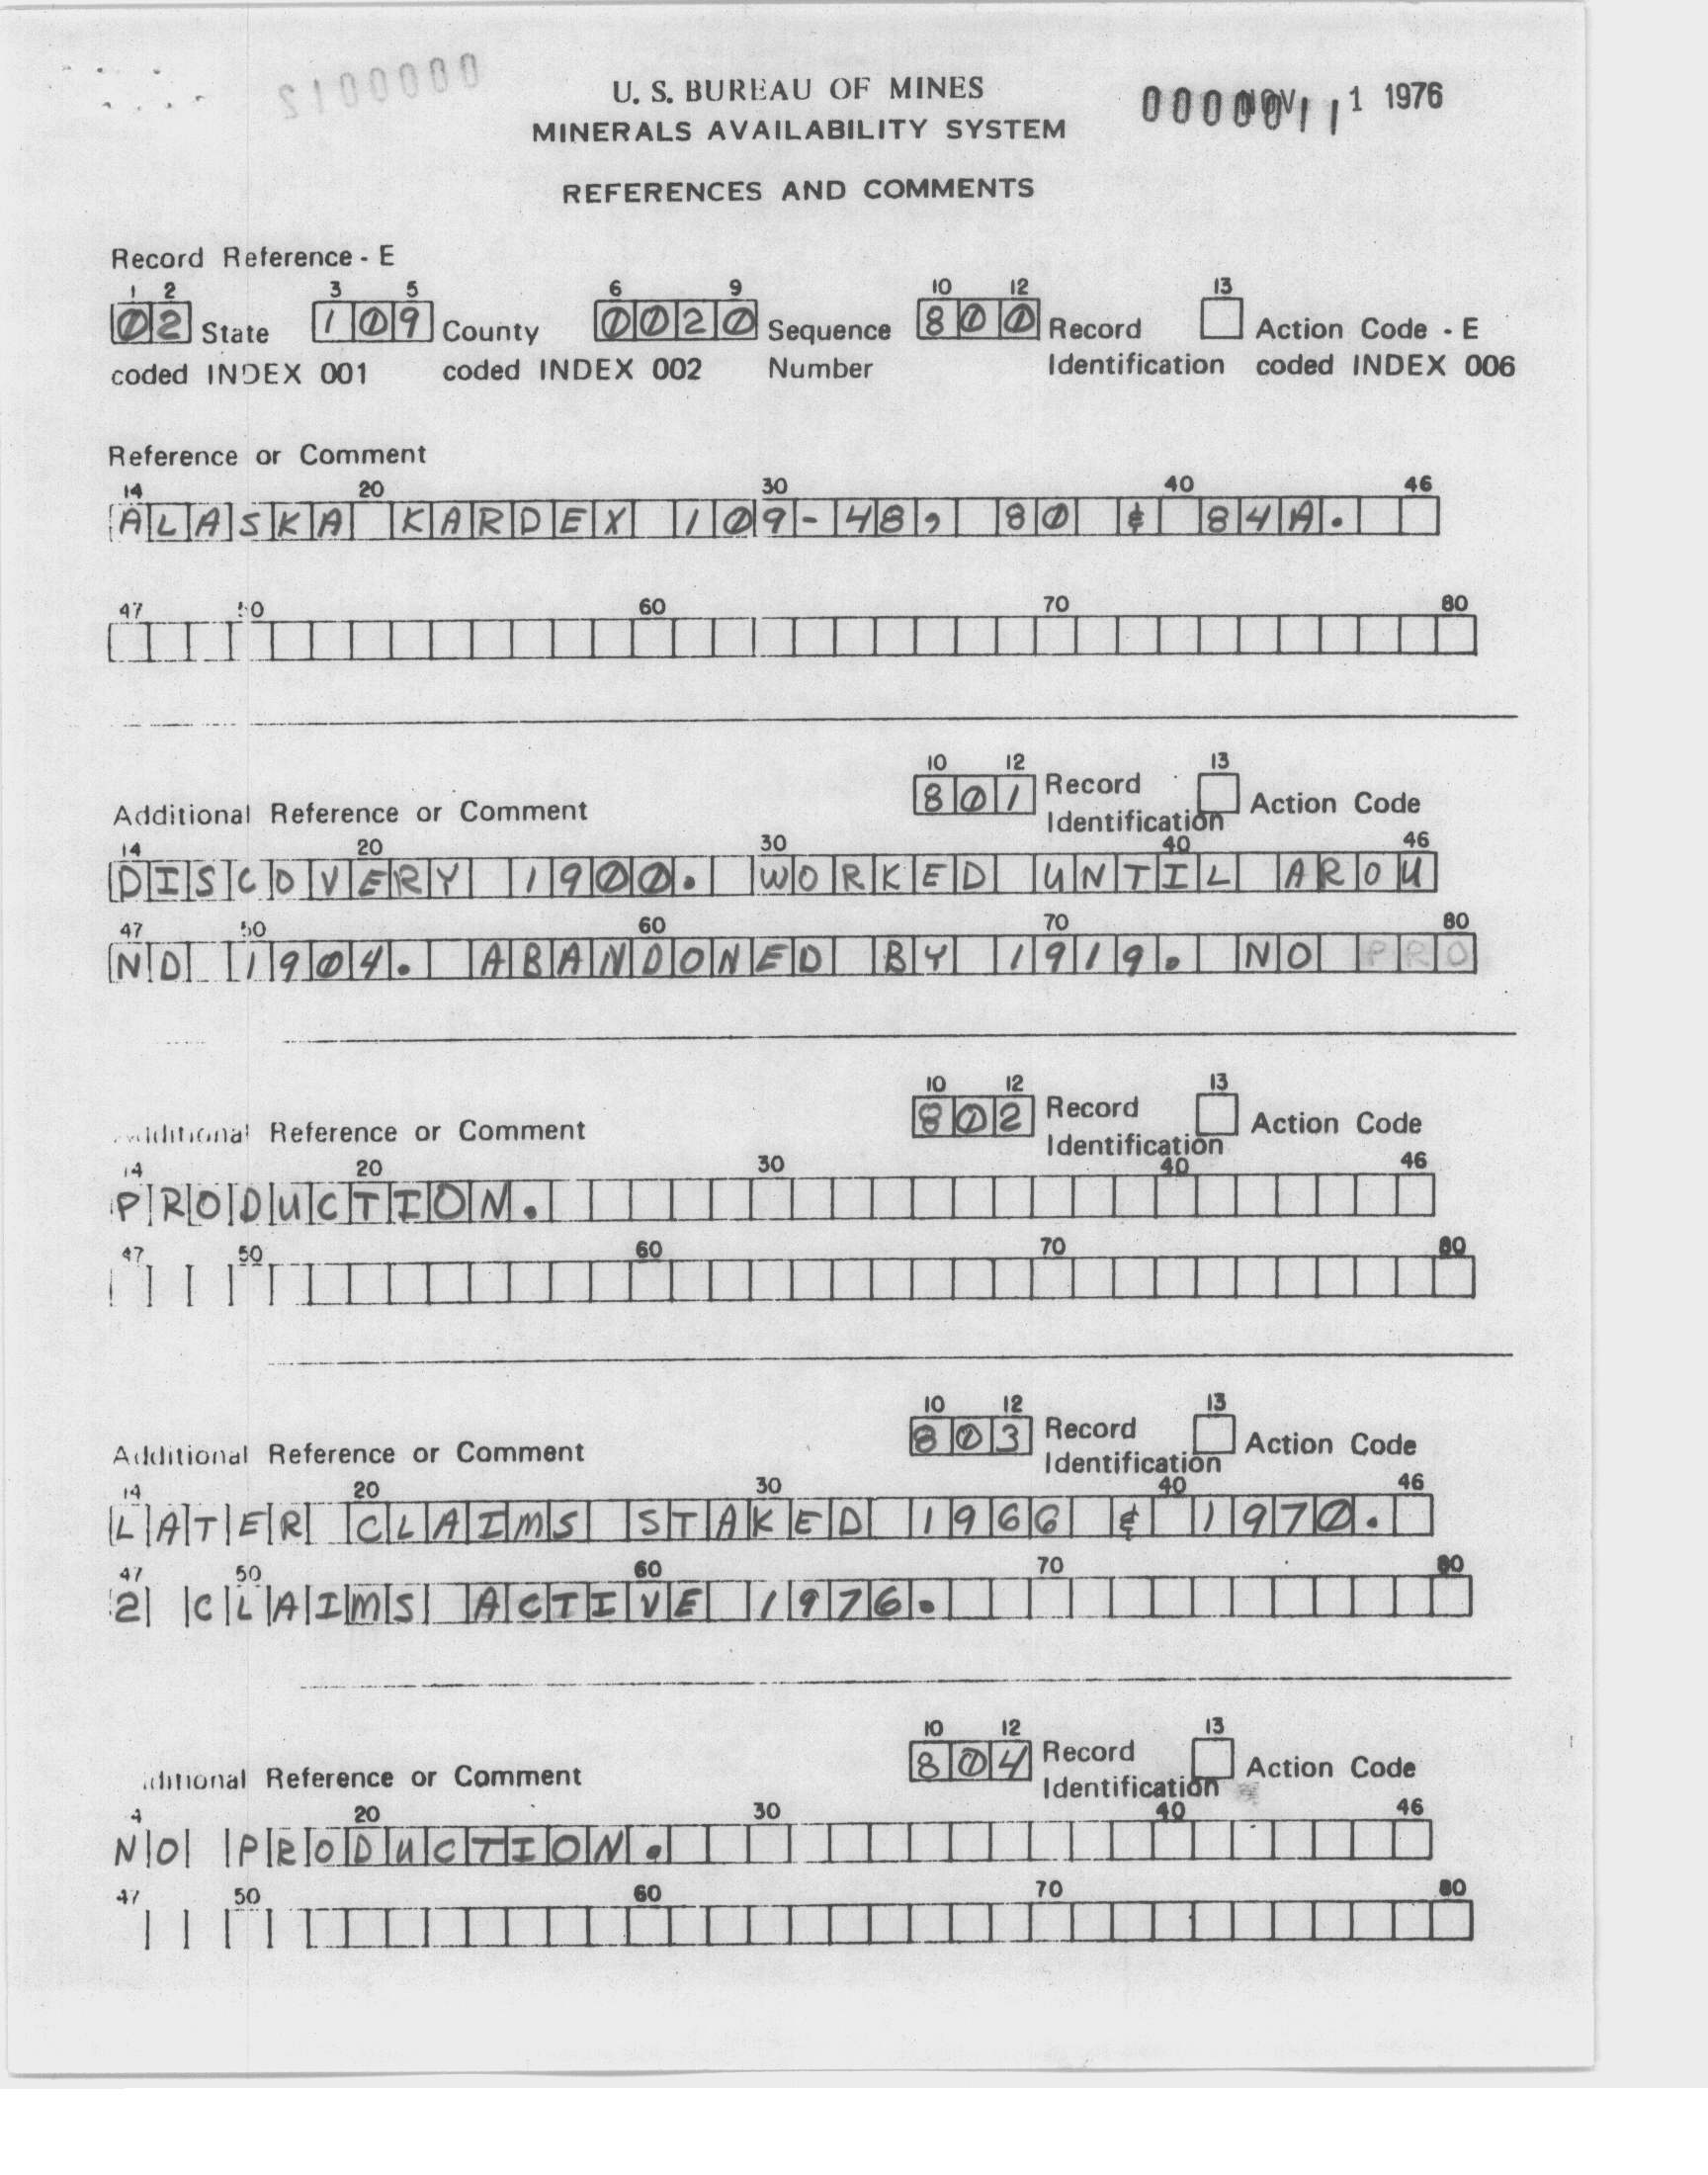 U. S. BUREAU OF MINES
MINERALS AVAILABILITY SYSTEM
NOV 1 1976
REFERENCES AND COMMENTS
Record Reference - E
1 2 3 5 6 9 10 12 13
02 State 109 County 0020 Sequence 800 Record Action Code - E
coded INDEX 001 coded INDEX 002 Number Identification coded INDEX 006
Reference or Comment
14 20 30 40 46
ALASKA KARDEX 109-48, 80 & 84A.
47 50 60 70 80
10 12 13
801 Record Action Code
Additional Reference or Comment Identification
14 20 30 40 46
DISCOVERY 1900. WORKED UNTIL AROU
47 50 60 70 80
ND 1904. ABANDONED BY 1919. NO PRO
10 12 13
802 Record Action Code
Additional Reference or Comment Identification
14 20 30 40 46
PRODUCTION.
47 50 60 70 80
10 12 13
803 Record Action Code
Additional Reference or Comment Identification
14 20 30 40 46
LATER CLAIMS STAKED 1966 & 1970.
47 50 60 70 80
2 CLAIMS ACTIVE 1976.
10 12 13
804 Record Action Code
Additional Reference or Comment Identification
4 20 30 40 46
NO PRODUCTION.
47 50 60 70 80